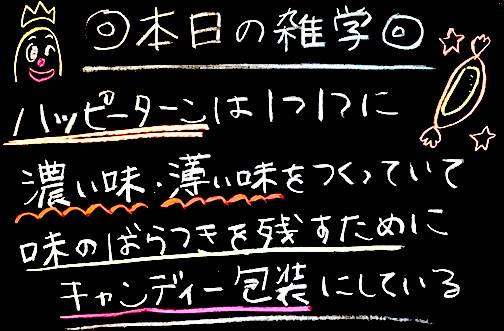 ◎本日の雑学◎
ハッピーターンは1つ1つに
濃い味・薄い味をつくっていて
味のばらつきを残すために
キャンディー包装にしている